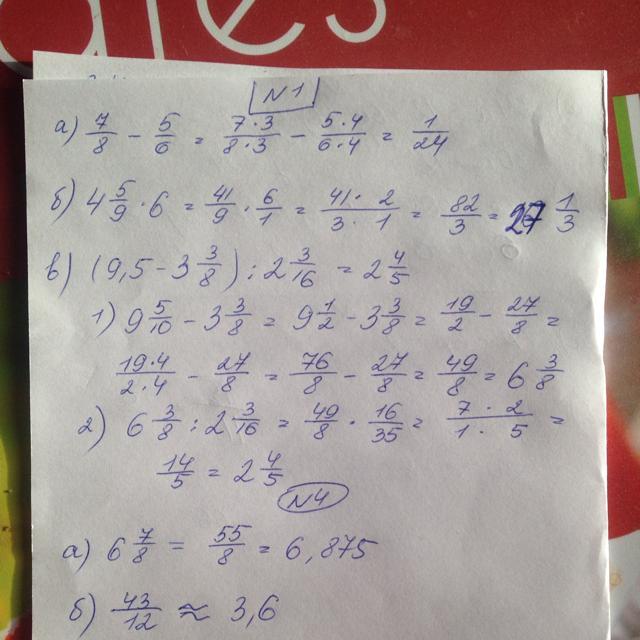 N1
а) 7/8 - 5/6 = 7·3/8·3 - 5·4/6·4 = 1/24
б) 4 5/9 · 6 = 41/9 · 6/1 = 41·2/3·1 = 82/3 = 27 1/3
в) (9,5 - 3 3/8) : 2 3/16 = 2 4/5
1) 9 5/10 - 3 3/8 = 9 1/2 - 3 3/8 = 19/2 - 27/8 =
19·4/2·4 - 27/8 = 76/8 - 27/8 = 49/8 = 6 3/8
2) 6 3/8 : 2 3/16 = 49/8 · 16/35 = 7·2/1·5 =
14/5 = 2 4/5
N4
а) 6 7/8 = 55/8 = 6,875
б) 43/12 ≈ 3,6